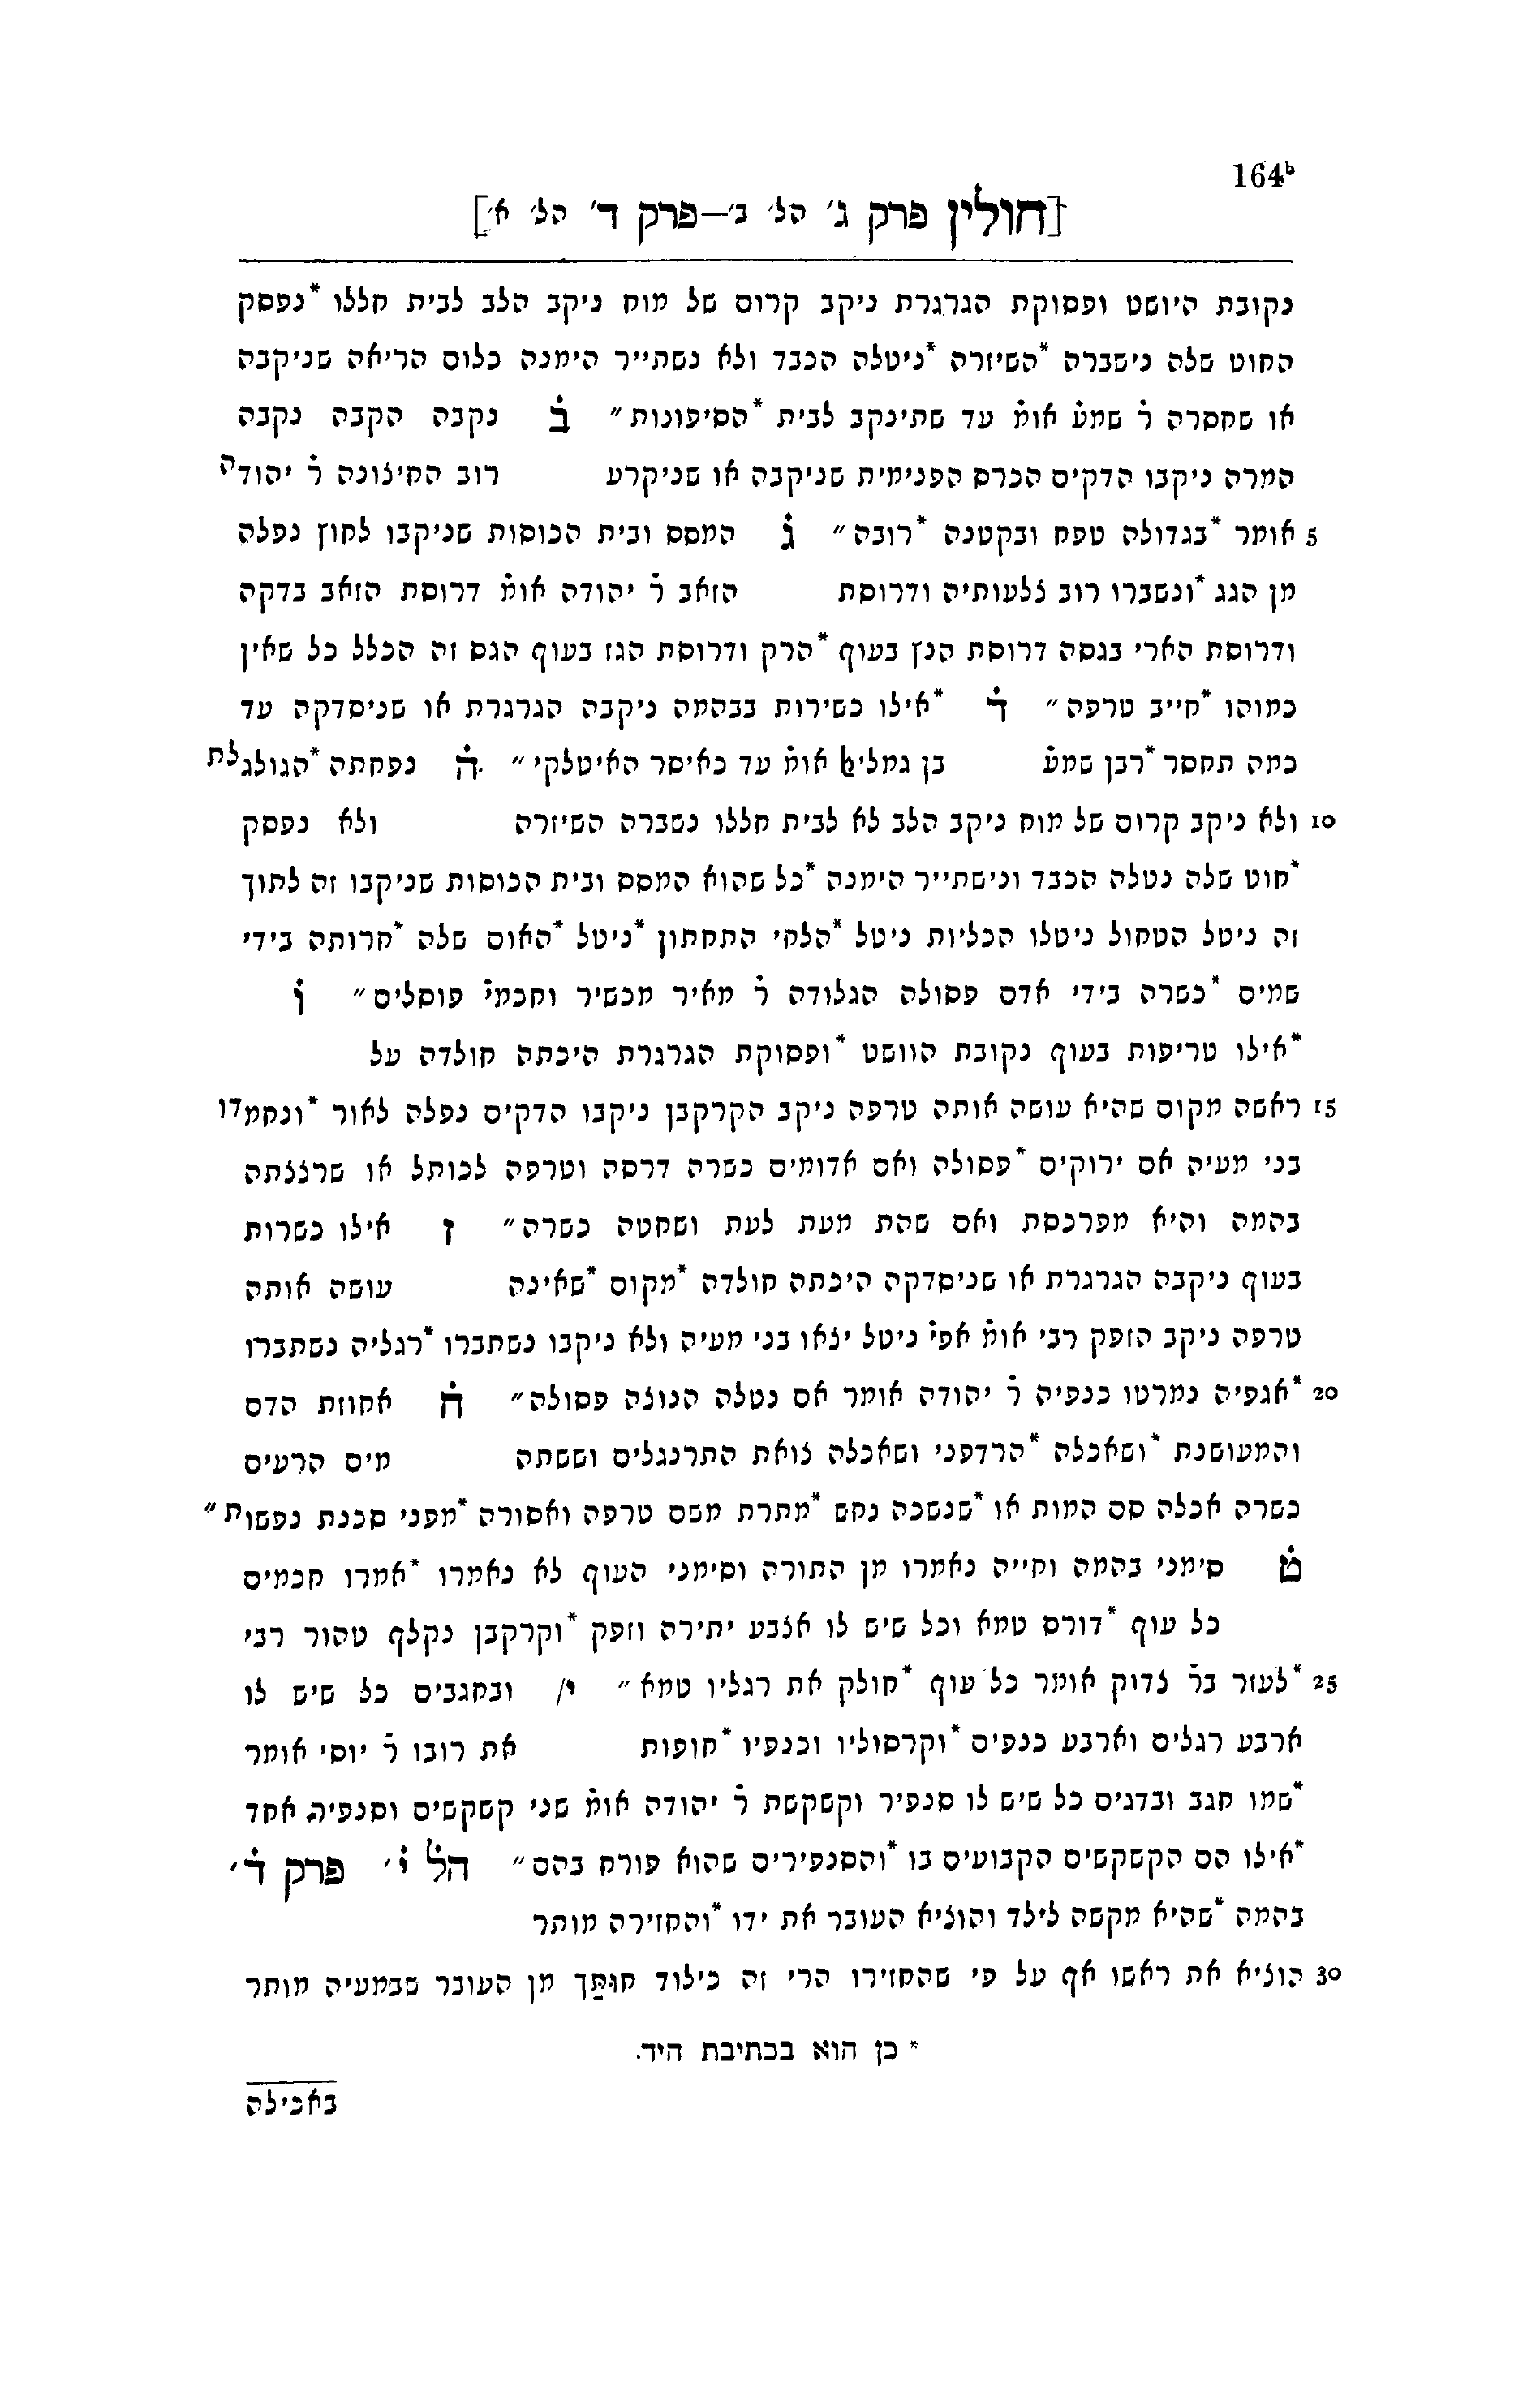 164ᵇ
[חולין פרק ג' הל' ב'—פרק ד' הל' א']
נקובת היושט ופסוקת הגרגרת ניקב קרום של מוח ניקב הלב לבית חללו *נפסק
החוט שלה נישברה *השיזרה *ניטלה הכבד ולא נשתייר הימנה כלום הריאה שניקבה
או שחסרה ר̇ שמע̇ אומ̇ עד שתינקב לבית *הסיפונות״ ב̇ נקבה הקבה נקבה
המרה ניקבו הדקים הכרס הפנימית שניקבה או שניקרע רוב החיצונה ר̇ יהודה
5 אומר *בגדולה טפח ובקטנה *רובה״ ג̇ המסס ובית הכוסות שניקבו לחוץ נפלה
מן הגג *ונשברו רוב צלעותיה ודרוסת הזאב ר̇ יהודה אומ̇ דרוסת הזאב בדקה
ודרוסת הארי בגסה דרוסת הנץ בעוף *הרק ודרוסת הגז בעוף הגס זה הכלל כל שאין
כמוהו *חייב טרפה״ ד̇ *אילו כשירות בבהמה ניקבה הגרגרת או שניסדקה עד
כמה תחסר *רבן שמע̇ בן גמליאל אומ̇ עד כאיסר האיטלקי״ ה̇. נפחתה *הגולגלת
10 ולא ניקב קרום של מוח ניקב הלב לא לבית חללו נשברה השיזרה ולא נפסק
*חוט שלה נטלה הכבד ונישתייר הימנה *כל שהוא המסס ובית הכוסות שניקבו זה לתוך
זה ניטל הטחול ניטלו הכליות ניטל *הלחי התחתון *ניטל *האום שלה *חרותה בידי
שמים *כשרה בידי אדם פסולה הגלודה ר̇ מאיר מכשיר וחכמי̇ פוסלים״ ו̇
*אילו טריפות בעוף נקובת הוושט *ופסוקת הגרגרת היכתה חולדה על
15 ראשה מקום שהיא עושה אותה טרפה ניקב הקרקבן ניקבו הדקים נפלה לאור *ונחמדו
בני מעיה אם ירוקים *פסולה ואם אדומים כשרה דרסה וטרפה לכותל או שרצצתה
בהמה והיא מפרכסת ואם שהת מעת לעת ושחטה כשרה״ ז אילו כשרות
בעוף ניקבה הגרגרת או שניסדקה היכתה חולדה *מקום *שאינה עושה אותה
טרפה ניקב הזפק רבי אומ̇ אפי̇ ניטל יצאו בני מעיה ולא ניקבו נשתברו *רגליה נשתברו
20 *אגפיה נמרטו כנפיה ר̇ יהודה אומר אם נטלה הנוצה פסולה״ ח̇ אחוזת הדם
והמעושנת *ושאכלה *הרדפני ושאכלה צואת התרנגלים וששתה מים הרעים
כשרה אכלה סם המות או *שנשכה נחש *מתרת משם טרפה ואסורה *מפני סכנת נפשות״
ט̇ סימני בהמה וחייה נאמרו מן התורה וסימני העוף לא נאמרו *אמרו חכמים
כל עוף *דורס טמא וכל שיש לו אצבע יתירה וזפק *וקרקבן נקלף טהור רבי
25 *לעזר בר̇ צדוק אומר כל עוף *חולק את רגליו טמא״ י/ ובחגבים כל שיש לו
ארבע רגלים וארבע כנפים *וקרסוליו וכנפיו *חופות את רובו ר̇ יוסי אומר
*שמו חגב ובדגים כל שיש לו סנפיר וקשקשת ר̇ יהודה אומ̇ שני קשקשים וסנפיר אחד
*אילו הם הקשקשים הקבועים בו *והסנפירים שהוא פורח בהם״ הל̇ י̇' פרק ד̇'
בהמה *שהיא מקשה לילד והוציא העובר את ידו *והחזירה מותר
30 הוציא את ראשו אף על פי שהחזירו הרי זה כילוד חותך מן העובר שבמעיה מותר
* כן הוא בכתיבת היד.
באכילה